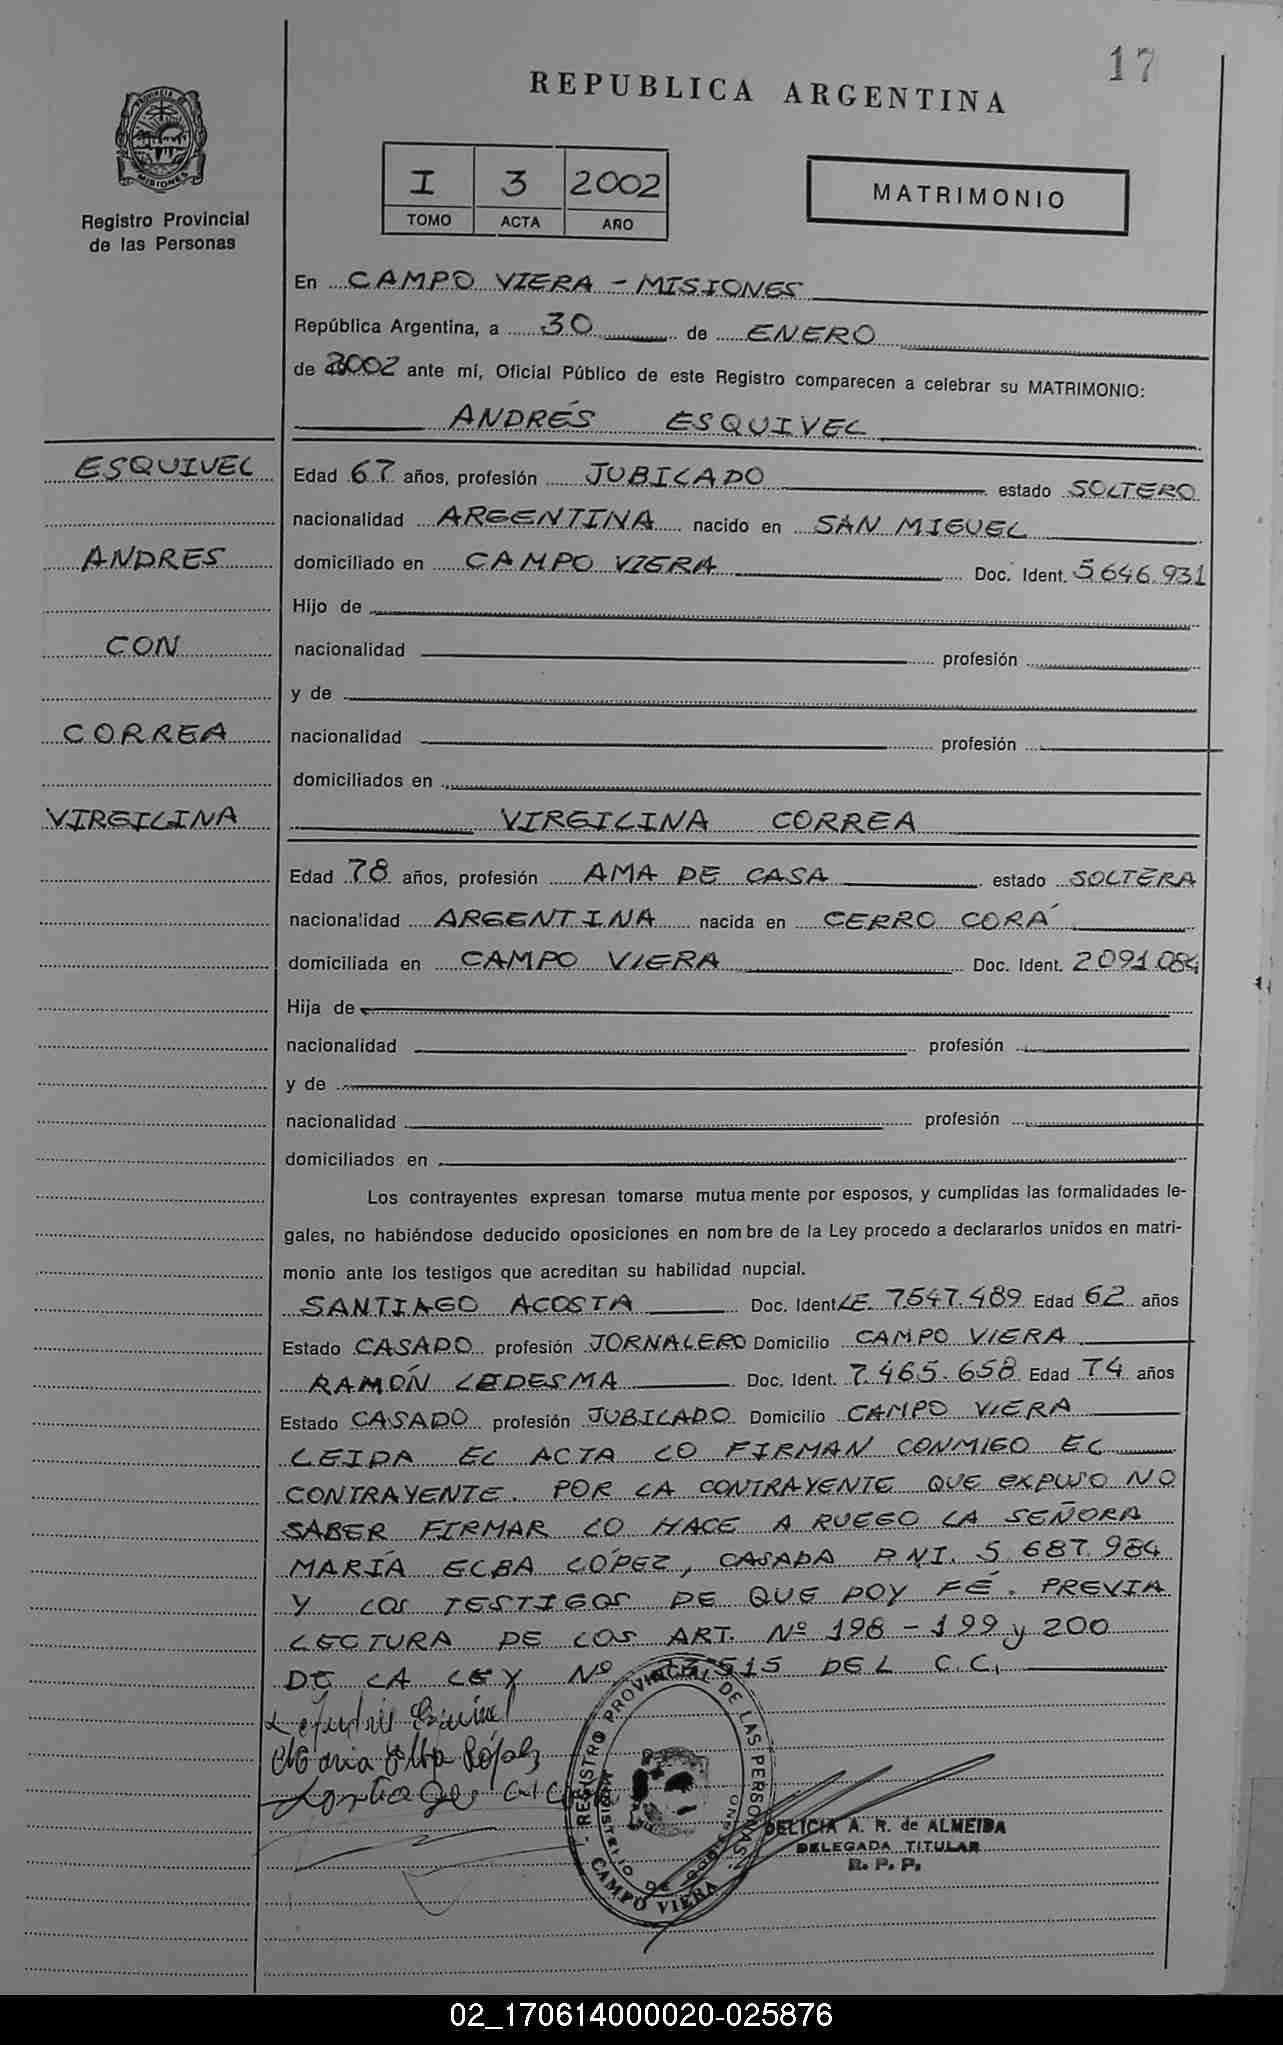 17
REPUBLICA ARGENTINA
PROVINCIA DE MISIONES
Registro Provincial
de las Personas
I 3 2002
TOMO ACTA AÑO
MATRIMONIO
En CAMPO VIERA - MISIONES
República Argentina, a 30 de ENERO
de 2002 ante mí, Oficial Público de este Registro comparecen a celebrar su MATRIMONIO:
ANDRÉS ESQUIVEL
ESQUIVEL
ANDRES
CON
CORREA
VIRGILINA
Edad 67 años, profesión JUBILADO estado SOLTERO
nacionalidad ARGENTINA nacido en SAN MIGUEL
domiciliado en CAMPO VIERA Doc. Ident. 5646.931
Hijo de
nacionalidad profesión
y de
nacionalidad profesión
domiciliados en
VIRGILINA CORREA
Edad 78 años, profesión AMA DE CASA estado SOLTERA
nacionalidad ARGENTINA nacida en CERRO CORÁ
domiciliada en CAMPO VIERA Doc. Ident. 2091.084
Hija de
nacionalidad profesión
y de
nacionalidad profesión
domiciliados en
Los contrayentes expresan tomarse mutua mente por esposos, y cumplidas las formalidades le-
gales, no habiéndose deducido oposiciones en nom bre de la Ley procedo a declararlos unidos en matri-
monio ante los testigos que acreditan su habilidad nupcial.
SANTIAGO ACOSTA Doc. Ident LE. 7547.489 Edad 62 años
Estado CASADO profesión JORNALERO Domicilio CAMPO VIERA
RAMÓN LEDESMA Doc. Ident. 7.465.658 Edad 74 años
Estado CASADO profesión JUBILADO Domicilio CAMPO VIERA
LEIDA EL ACTA LO FIRMAN CONMIGO EL
CONTRAYENTE. POR LA CONTRAYENTE QUE EXPUSO NO
SABER FIRMAR LO HACE A RUEGO LA SEÑORA
MARÍA ELBA LÓPEZ, CASADA D NI. 5 687.984
Y LOS TESTIGOS DE QUE DOY FÉ. PREVIA
LECTURA DE LOS ART. Nº 198 - 199 y 200
DE LA LEY Nº 23.515 DEL C.C.
Maria Elba López
REGISTRO PROVINCIAL DE LAS PERSONAS
MINISTERIO DE GOBIERNO
CAMPO VIERA
DELICIA A. R. de ALMEIDA
DELEGADA TITULAR
R. P. P.
02_170614000020-025876